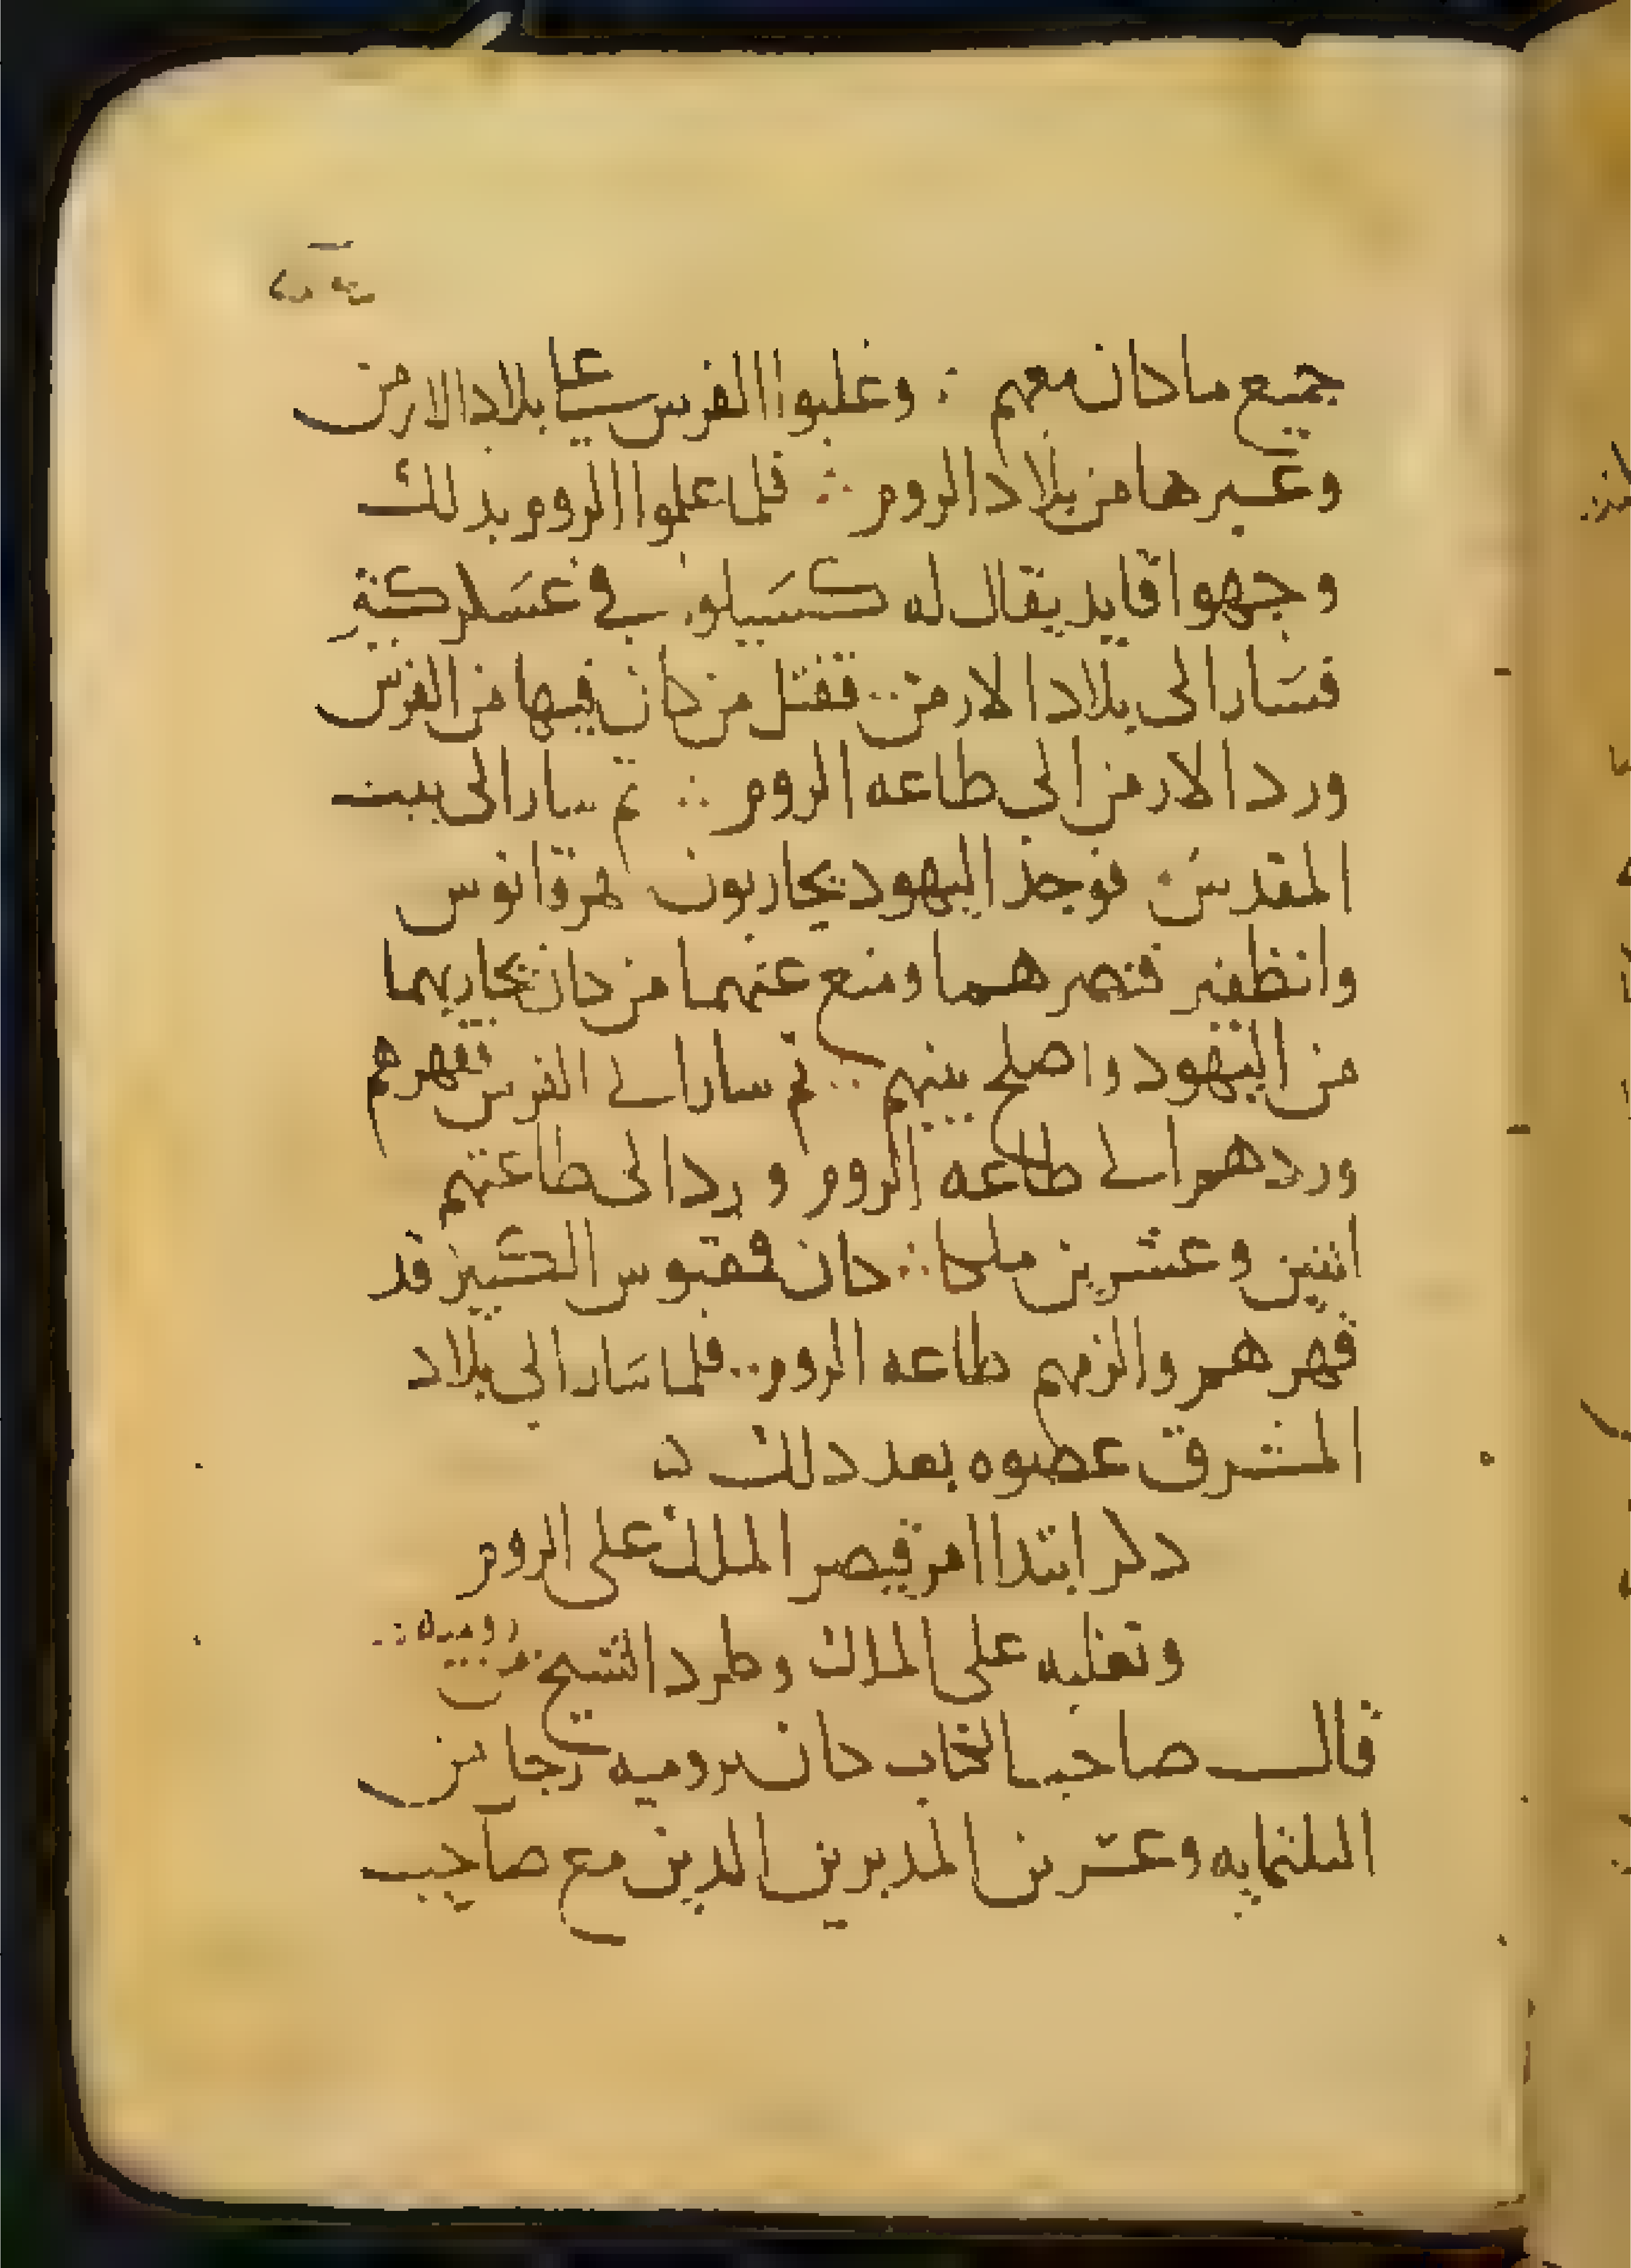 جميع ما كان معهم ∴ وغلبوا الفرس على بلاد الارمن
وغيرها من بلاد الروم ∴ فلما علموا الروم بدلك
وجهوا قايد يقال له كسيلوا في عسكر كبير
فسار الى بلاد الارمن ∴ فقتل من كان فيها من الفرس
ورد الارمن الى طاعه الروم ∴ ثم سار الى بيت
المقدس ∴ فوجد اليهود يحاربون لهرقانوس
وانظفير فنصرهما ومنع عنهما من كان يحاربهما
من اليهود واصلح بينهم ∴ ثم سار الى الفرس فقهرهم
وردهم الى طاعه الروم ورد الى طاعتهم
اثنين وعشرين ملكا ∴ كان فمقيوس الكبير قد
قهرهم والزمهم طاعه الروم ∴ فلما سار الى بلاد
المشرق عصوه بعد دلك
دكر ابتدا امر قيصر الملك على الروم
وتغلبه على الملك وطرد الشيخ من روميه ∴
قال صاحب الكتاب كان بروميه رجل من
الثلثمايه وعشرين المدبرين الدين مع صاحب